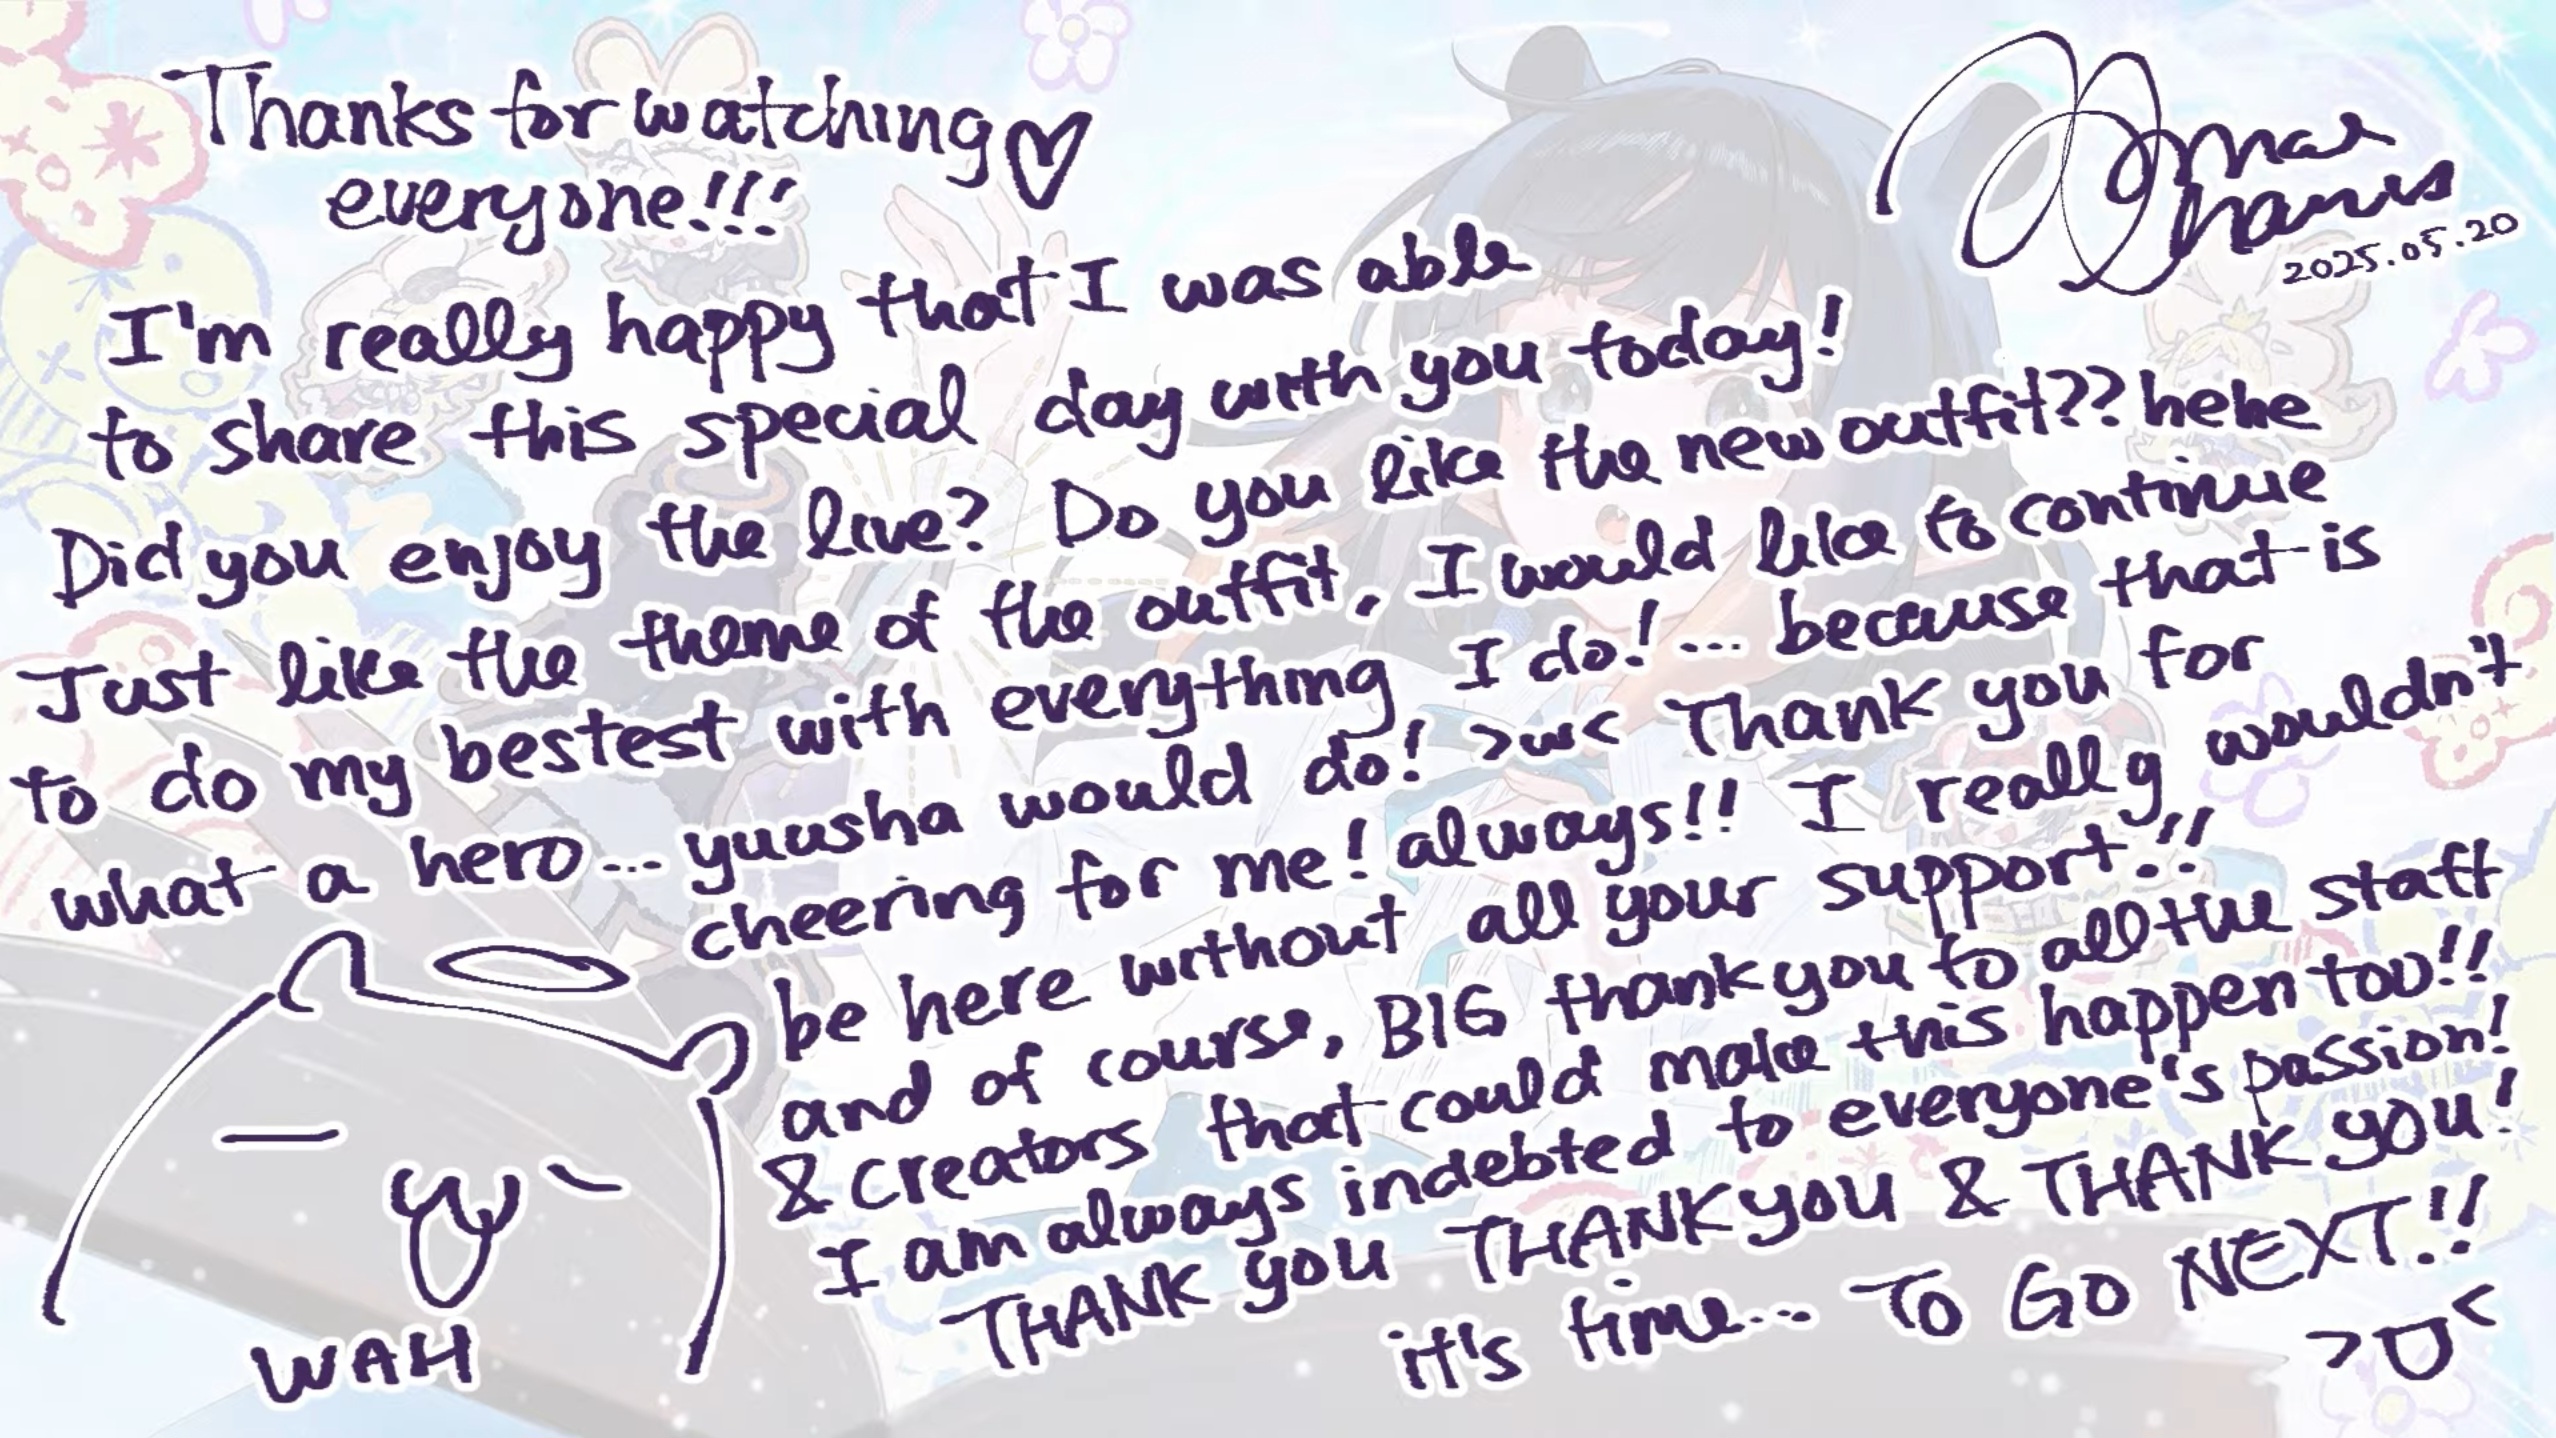 Thanks for watching♡
everyone!!!
I'm really happy that I was able
to share this special day with you today!
Did you enjoy the live? Do you like the new outfit?? hehe
Just like the theme of the outfit, I would like to continue
to do my bestest with everything I do!... because that is
what a hero... yuusha would do! >w< Thank you for
cheering for me! always!! I really wouldn't
be here without all your support!!
and of course, BIG thank you to all the staff
& creators that could make this happen too!!
I am always indebted to everyone's passion!
THANK you THANK you & THANK you!
it's time... TO GO NEXT!!
>D<
WAH
2025.05.20